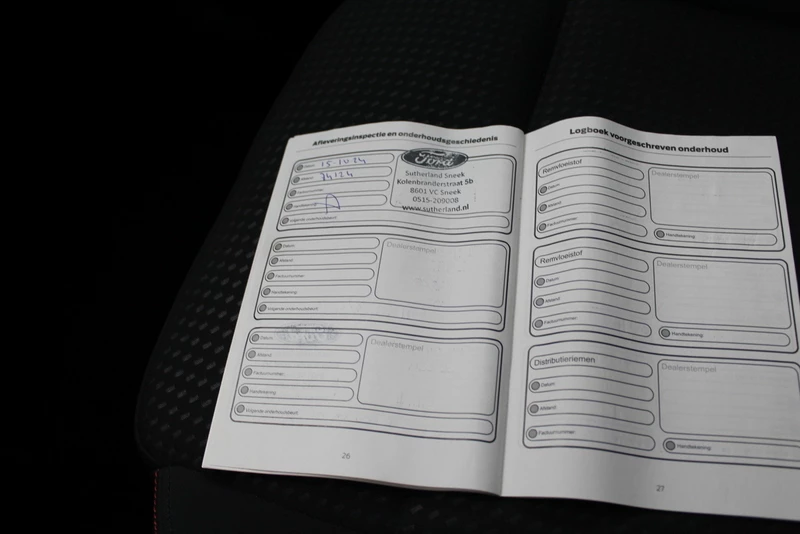 Afleveringsinspectie en onderhoudsgeschiedenis
Datum: 15.10 24
Afstand:
Handtekening: A
Volgende onderhoudsbeurt:
Ford
Sutherland Sneek
Kolenbranderstraat 5b
8601 VC Sneek
0515-209008
www.sutherland.nl
Datum:
Afstand:
Factuurnummer:
Handtekening:
Volgende onderhoudsbeurt:
Dealerstempel
Datum:
Afstand:
Factuurnummer:
Handtekening:
Volgende onderhoudsbeurt:
Dealerstempel
26
Logboek voorgeschreven onderhoud
Remvloeistof
Datum:
Afstand:
Factuurnummer:
Dealerstempel
Handtekening:
Remvloeistof
Datum:
Afstand:
Factuurnummer:
Dealerstempel
Handtekening:
Distributieriemen
Datum:
Afstand:
Factuurnummer:
Dealerstempel
Handtekening:
27